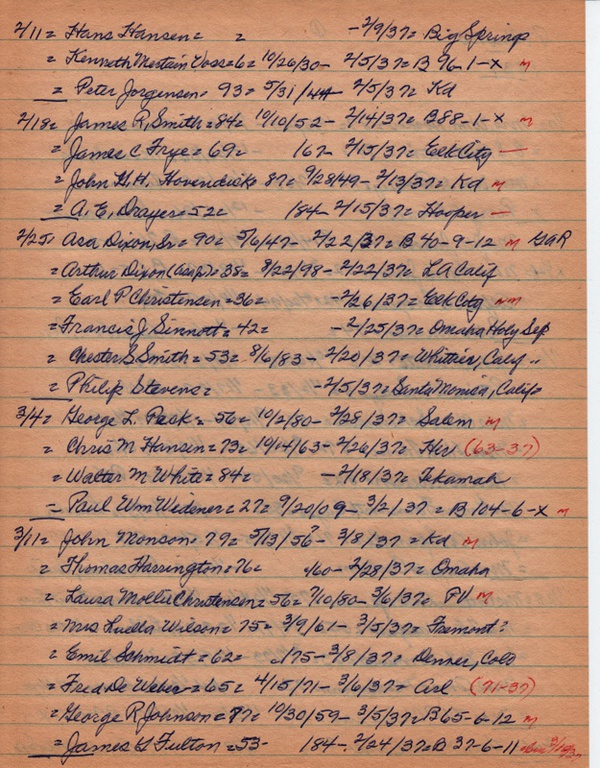 2/11 = Hans Hansen = = - 2/9/37 = Big Springs
= Kenneth Mertain Voss = 6 = 10/26/30 - 2/5/37 = B 96-1-X m
= Peter Jorgensen = 93 = 5/31/44 - 2/5/37 = Kd
2/18 = James R. Smith = 84 = 10/10/52 - 2/14/37 = B 88-1-X m
= James C Frye = 69 = 167 - 2/15/37 = Elk City —
= John H.H. Hovendick = 87 = 9/28/49 - 2/13/37 = Kd m
= A. E. Drayer = 52 = 184 - 2/15/37 = Hooper —
2/25 = Asa Dixon, Sr = 90 = 5/6/47 - 2/22/37 = B 40-9-12 m GAR
= Arthur Dixon = 38 = 8/22/98 - 2/22/37 = LA Calif
= Earl P Christensen = 36 = - 2/26/37 = Elk City
= Francis J Sinnott = 42 = - 2/25/37 = Omaha Holy Sep
= Chester S Smith = 53 = 8/6/83 - 2/20/37 = Whittier, Calif "
= Philip Stevens = - 2/5/37 = Santa Monica, Calif
3/4 = George L. Peck = 56 = 10/2/80 - 2/28/37 = Salem m
= Chris M Hansen = 73 = 10/14/63 - 2/26/37 = Her (63-37)
= Walter M White = 84 = - 2/18/37 = Tekamah
= Paul Wm Widener = 27 = 9/20/09 - 3/2/37 = B 104-6-X m
3/11 = John Monson = 79 = 5/13/56? - 3/8/37 = Kd m
= Thomas Harrington = 76 = /60 - 2/28/37 = Omaha
= Laura Mollie Christensen = 56 = 7/10/80 - 3/6/37 = PV m
= Mrs Luella Wilson = 75 = 3/9/61 - 3/5/37 = Fremont?
= Emil Schmidt = 62 = /75 - 3/8/37 = Denver, Colo
= Fred De Weber = 65 = 4/15/71 - 3/6/37 = Arl (71-37)
= George R Johnson = 77 = 10/30/59 - 3/5/37 = B 65-6-12 m
= James G Fulton = 53 - 184 - 2/24/37 = B 37-6-11